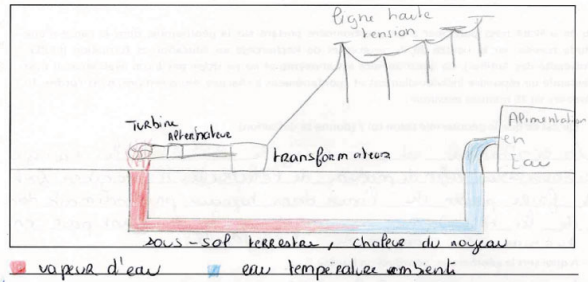 ligne haute
tension
Turbine
Alternateur
transformateur
Alimentation
en
Eau
sous-sol terrestre, chaleur du noyau
vapeur d'eau
eau température ambiante